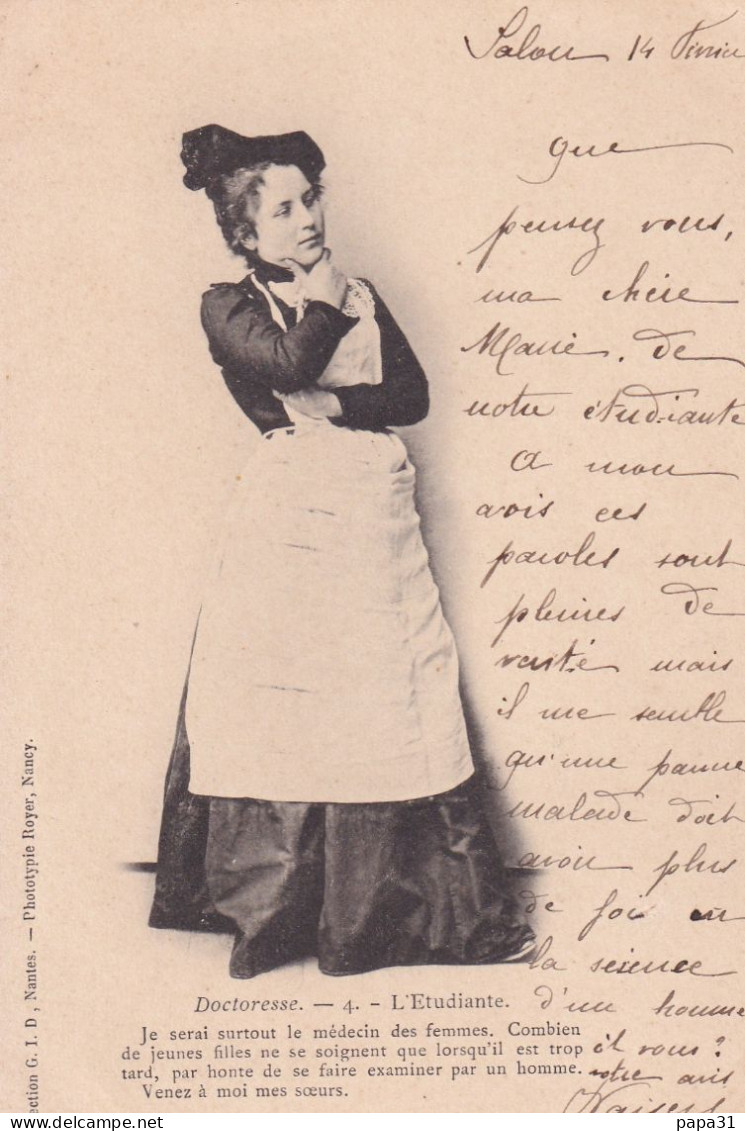 Salon 14 Février
que
pensez vous,
ma chère
Marie, de
notre étudiante
A mon
avis ces
paroles sont
pleines de
verité mais
il me semble
qu'une pauvre
malade doit
avoir plus
de foi en
la science
d'un homme
et vous?
votre avis
Baisers
Doctoresse. — 4. - L'Etudiante.
Je serai surtout le médecin des femmes. Combien
de jeunes filles ne se soignent que lorsqu'il est trop
tard, par honte de se faire examiner par un homme.
Venez à moi mes sœurs.
ection G. I. D, Nantes. — Phototypie Royer, Nancy.
papa31
delcampe.net